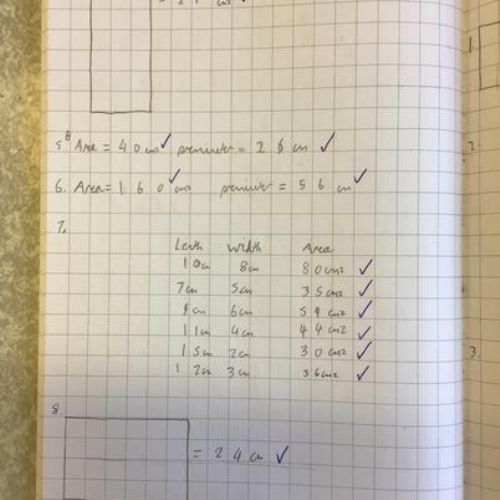 = 21 cm ✓
5 B Area = 40 cm ✓ perimeter = 26 cm ✓
6. Area = 160 cm ✓ perimeter = 56 cm ✓
7.
Leth width Area
10cm 8cm 80cm2 ✓
7cm 5cm 35cm2 ✓
9cm 6cm 54cm2 ✓
11cm 4cm 44cm2 ✓
15cm 2cm 30cm2 ✓
12cm 3cm 36cm2 ✓
8.
= 24 cm ✓
1.
2.
3.